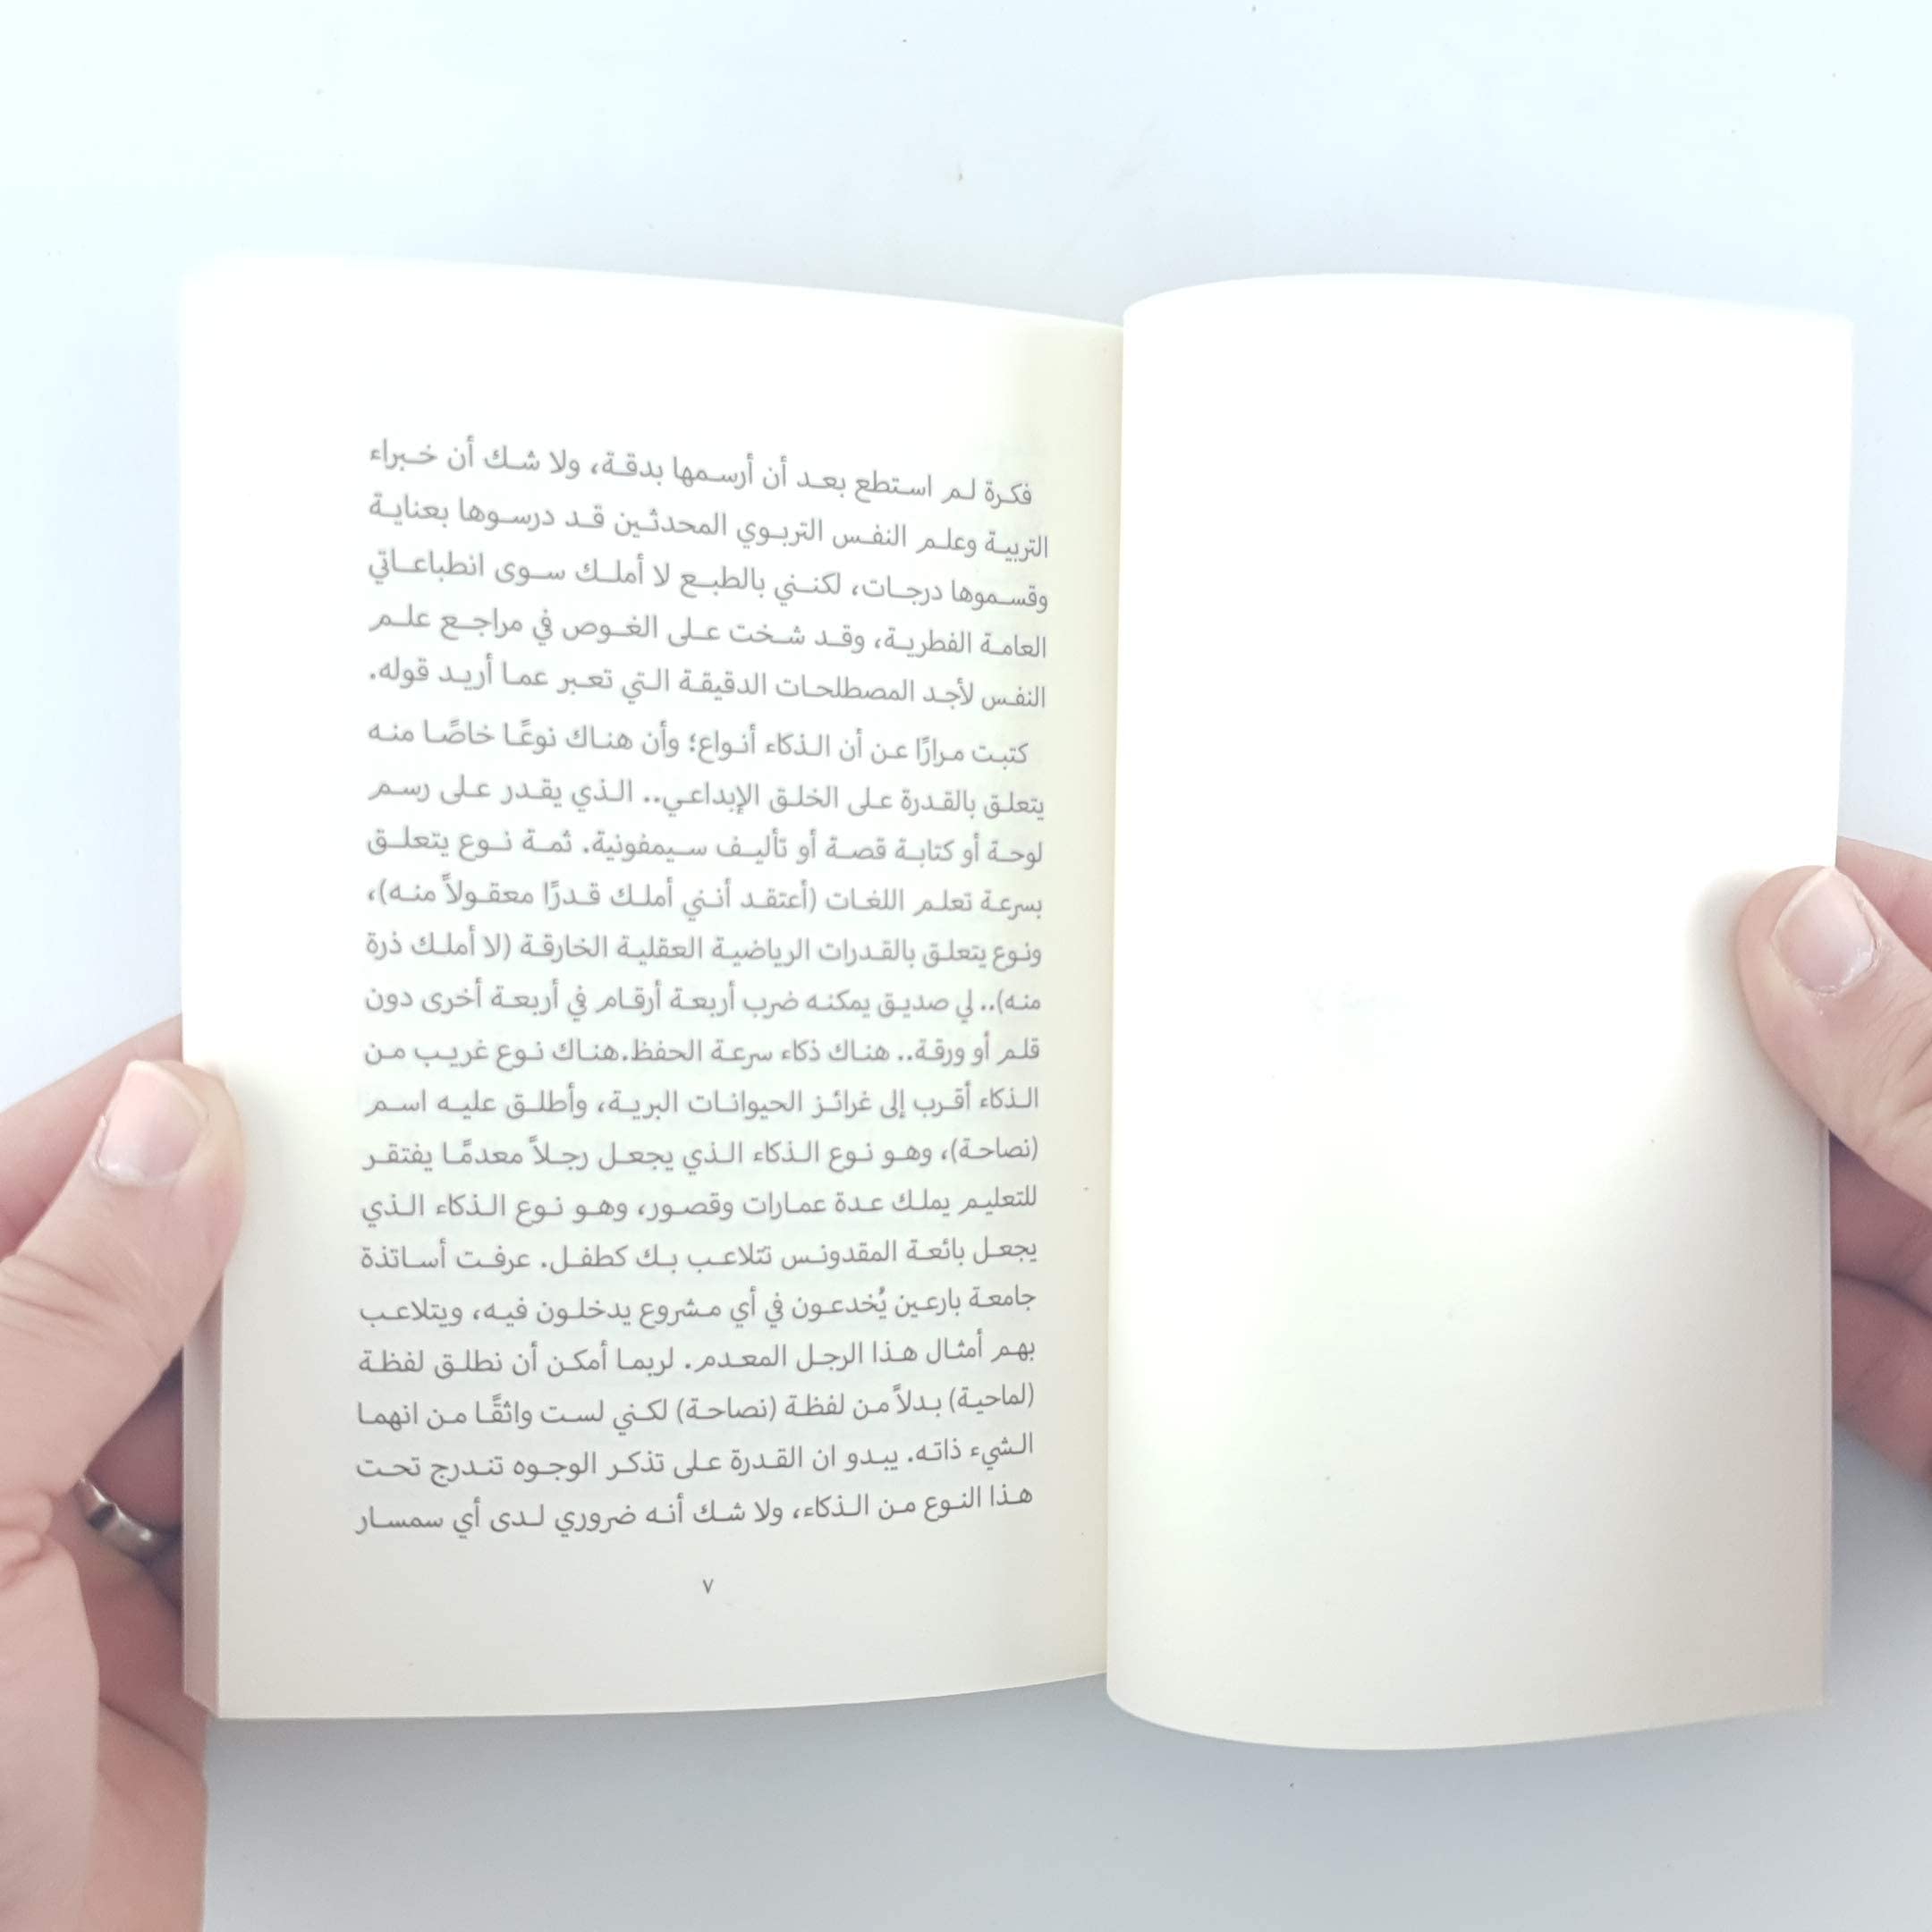 فكرة لم استطع بعد أن أرسمها بدقة، ولا شك أن خبراء
التربية وعلم النفس التربوي المحدثين قد درسوها بعناية
وقسموها درجات، لكنني بالطبع لا أملك سوى انطباعاتي
العامة الفطرية، وقد شخت على الغوص في مراجع علم
النفس لأجد المصطلحات الدقيقة التي تعبر عما أريد قوله.
كتبت مرارًا عن أن الذكاء أنواع؛ وأن هناك نوعًا خاصًا منه
يتعلق بالقدرة على الخلق الإبداعي.. الذي يقدر على رسم
لوحة أو كتابة قصة أو تأليف سيمفونية. ثمة نوع يتعلق
بسرعة تعلم اللغات (أعتقد أنني أملك قدرًا معقولاً منه)،
ونوع يتعلق بالقدرات الرياضية العقلية الخارقة (لا أملك ذرة
منه).. لي صديق يمكنه ضرب أربعة أرقام في أربعة أخرى دون
قلم أو ورقة.. هناك ذكاء سرعة الحفظ.هناك نوع غريب من
الذكاء أقرب إلى غرائز الحيوانات البرية، وأطلق عليه اسم
(نصاحة)، وهو نوع الذكاء الذي يجعل رجلاً معدمًا يفتقر
للتعليم يملك عدة عمارات وقصور، وهو نوع الذكاء الذي
يجعل بائعة المقدونس تتلاعب بك كطفل. عرفت أساتذة
جامعة بارعين يُخدعون في أي مشروع يدخلون فيه، ويتلاعب
بهم أمثال هذا الرجل المعدم. لربما أمكن أن نطلق لفظة
(لماحية) بدلاً من لفظة (نصاحة) لكني لست واثقًا من انهما
الشيء ذاته. يبدو ان القدرة على تذكر الوجوه تندرج تحت
هذا النوع من الذكاء، ولا شك أنه ضروري لدى أي سمسار
٧